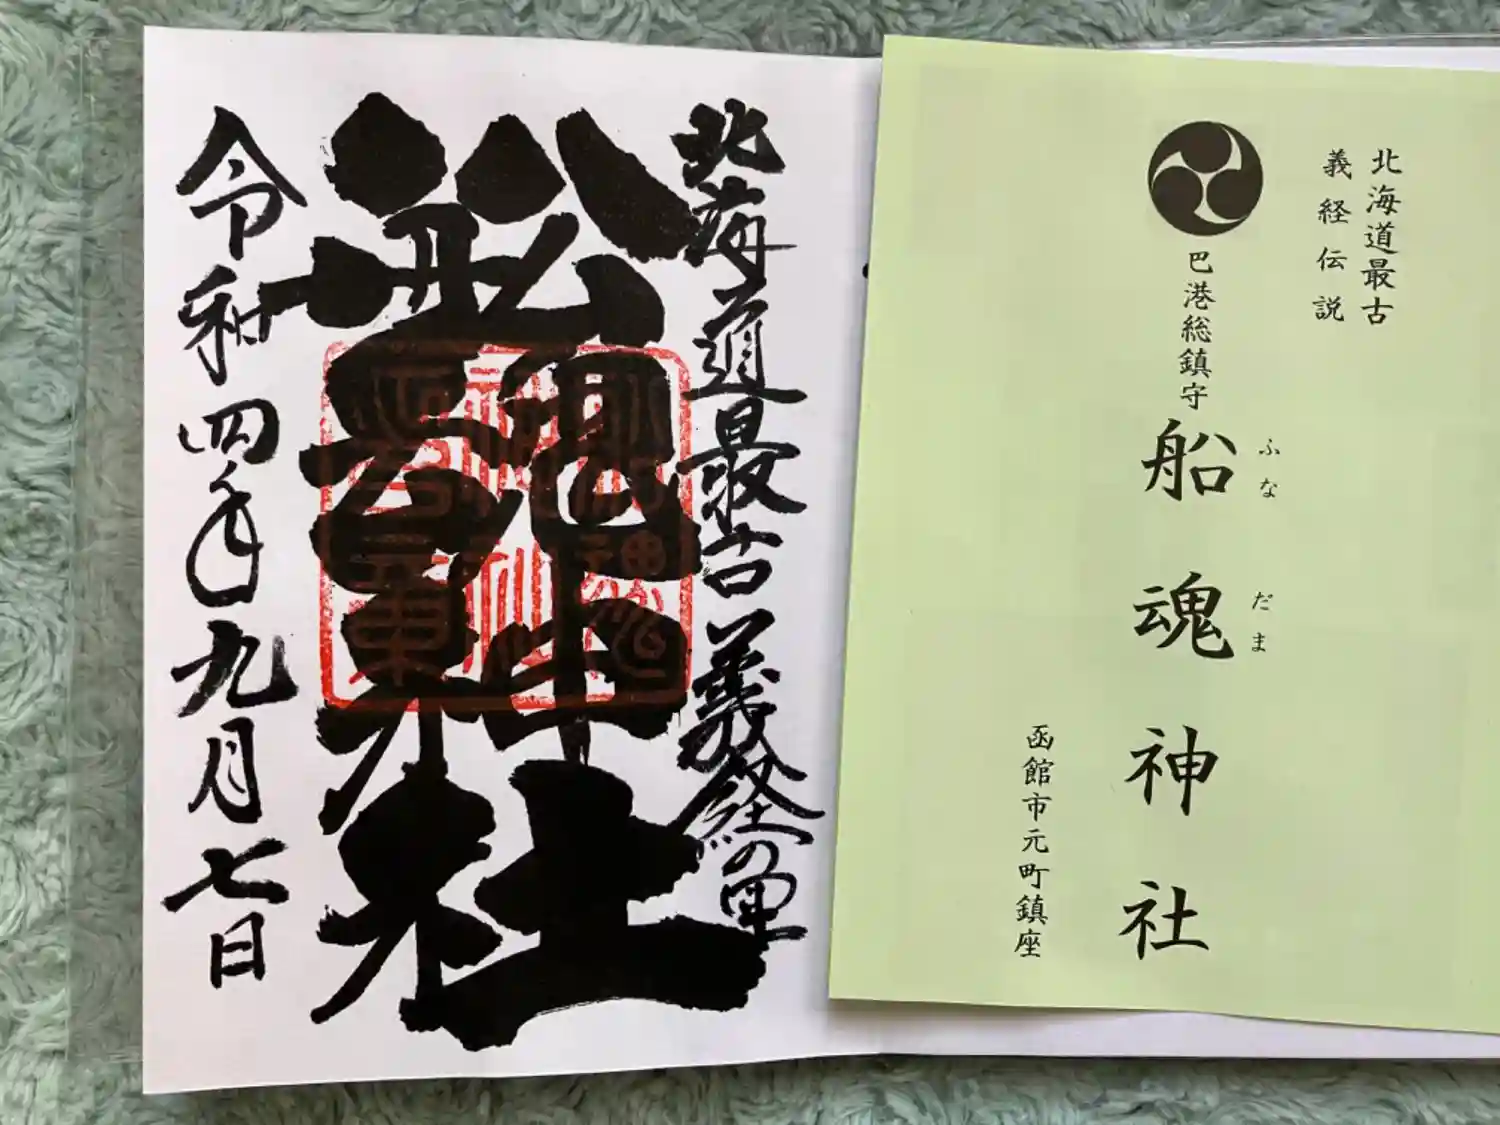 北海道最古
義経伝説
巴港総鎮守
船魂神社
ふなだま
函館市元町鎮座
北海道最古義経の里
船魂神社
令和四年九月七日